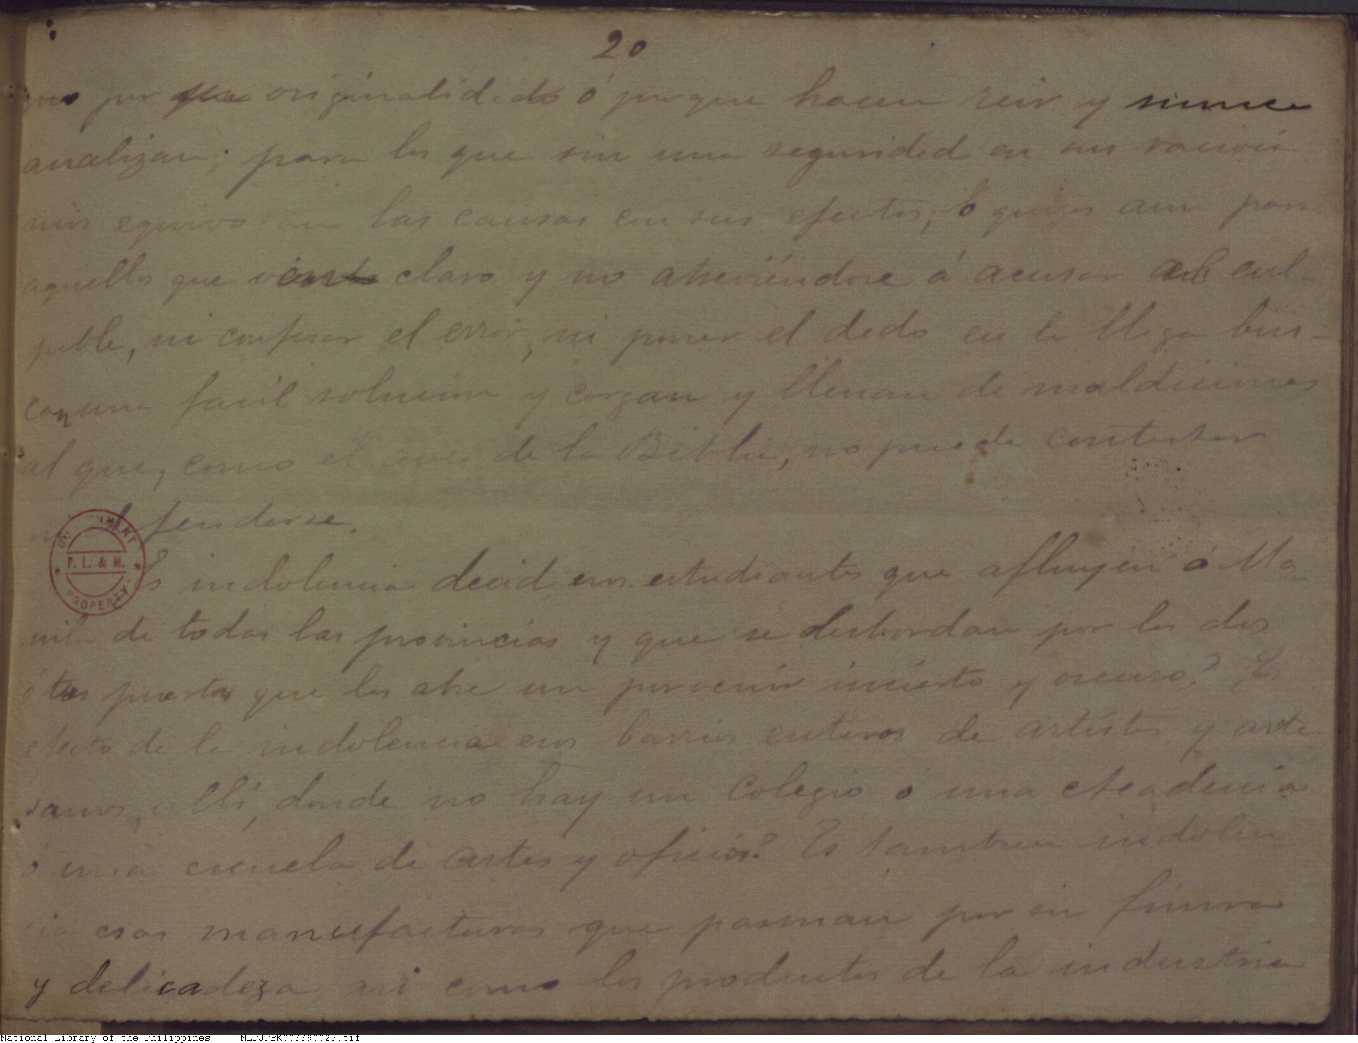 20
por su originalidad ó porque hacen reir y nunca
analizan; para los que sin una seguridad en sus
equivocan las causas con sus efectos, ó quizás aun para
aquellos que viendo claro y no atreviéndose á acusar al cul-
pable, ni confesar el error, ni poner el dedo en la llaga bus-
can una facil solucion y cargan y llenan de maldiciones
al que, como el de la Biblia, no puede contestar
ni defenderse.
Es indolencia decid esos estudiantes que afluyen á Ma-
nila de todas las provincias y que se desbordan por las dos
puertas que les abre un porvenir incierto y oscuro? Es
efecto de la indolencia esos barrios enteros de artistas y arte
sanos, allí, donde no hay un Colegio ó una Academia
ó una escuela de artes y oficios? Es tambien indolen
cia esas manufacturas que pasman por su finura
y delicadeza asi como los productos de la industria
GOVERNMENT
P. L. & M.
PROPERTY
National Library of the Philippines